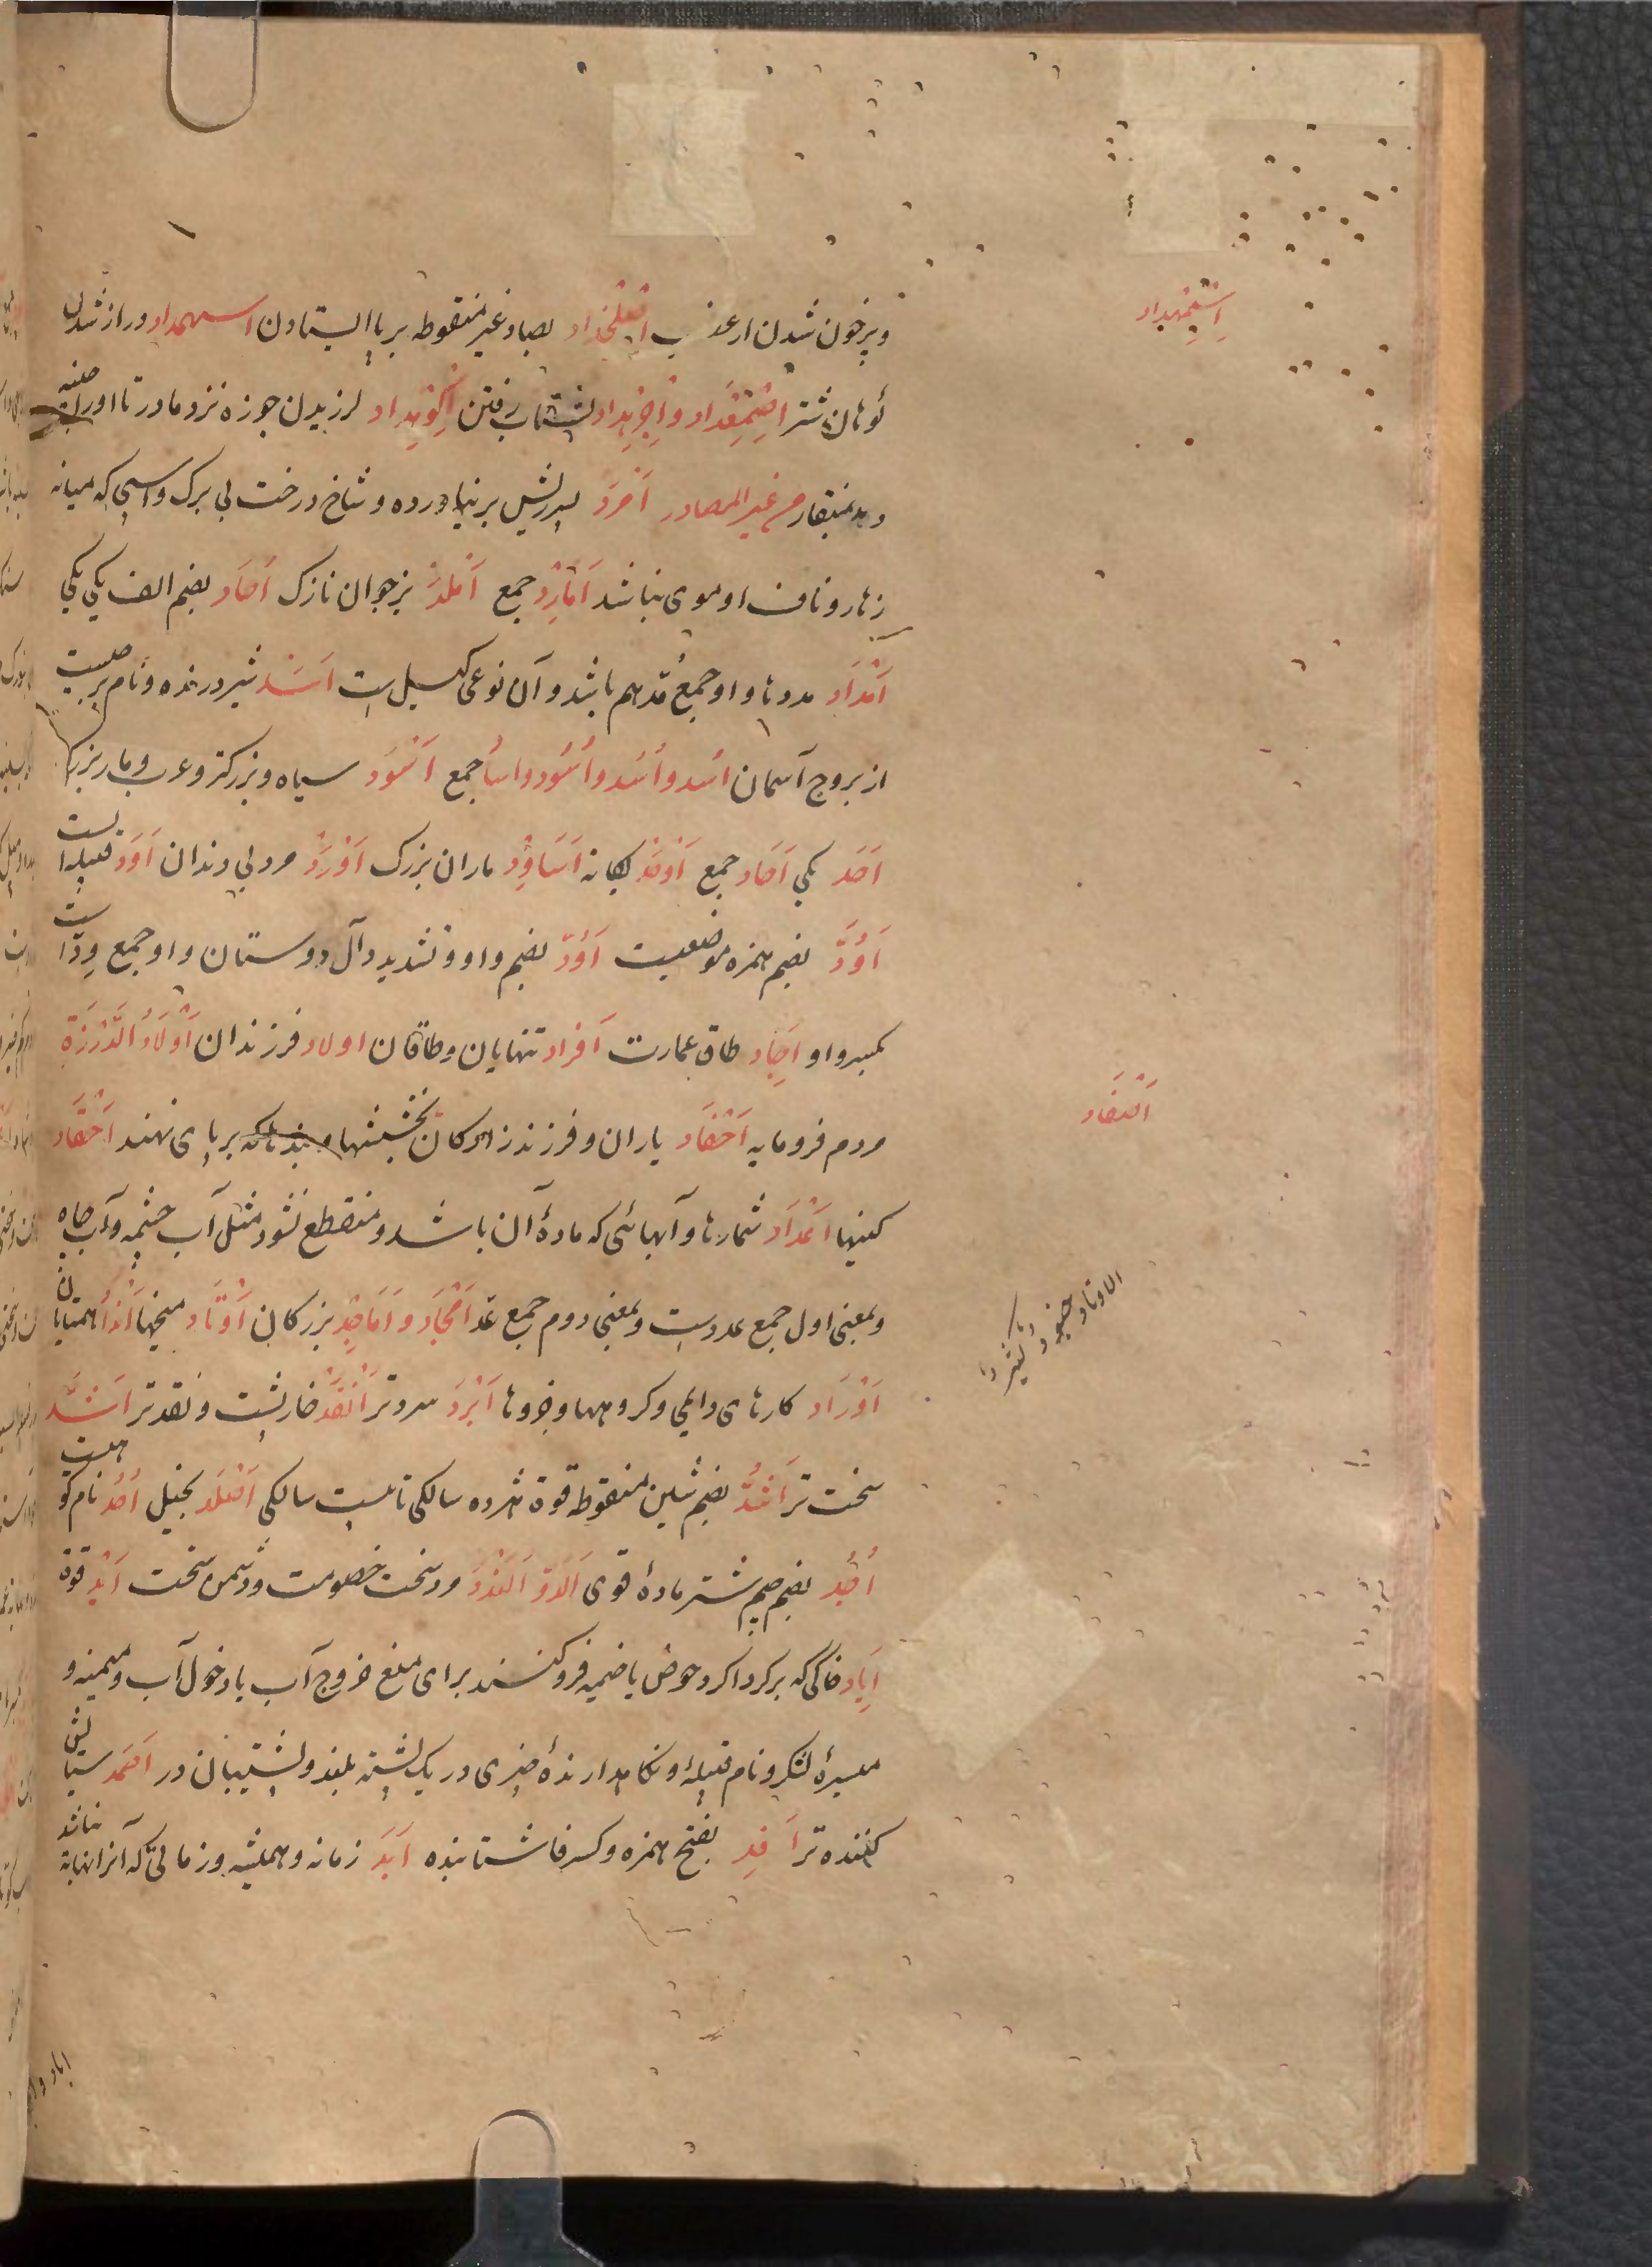 و پرخون شدن از غضب اصلخداد بصاد غیر منقوطه بر پا ایستادن اسمهداد دراز شدن
کوهان شتر اضمغداد و اجرهداد بشتاب رفتن اکوهداد لرزیدن جوزه نزد مادر تا او را چینه
دهد بمنقار من غیر المصادر اَمْرَد پسر ریش بر نیاورده و شاخ درخت بی برک و اسپی که میانه
زهار و ناف او موی نباشد اَمَارِد جمع اَمْلَد نرجوان نازک اُحَاد بضم الف یکی یکی
اَمْدَاد مددها و او جمع مُدّ هم باشد و آن نوعی کیل است اَسَد شیر درنده و نام برجیست
از بروج آسمان اُسْد و اُسُد و اُسُود و اساد جمع اَسْوَد سیاه و بزرکتر و عرب و مار بزرک
اَحَد یکی اَحَاد جمع اَوْحَد یکانه اَسَاوِد ماران بزرک اَدْرَد مرد بی دندان اَوَد قبیله ایست
اُوَد بضم همزه موضعیست اَوُدّ بضم واو و تشدید دال دوستان و او جمع وِدّ است
بکسر واو اِجَاد طاق عمارت اَفراد تنهایان و طاقان اولاد فرزندان اَوْلَادُ الدَّرْزَة
مردم فرومایه اَحْفَاد یاران و فرزندزادکان بخششها و بندها که بر پای نهند اَحْقَاد
کینها اَعْدَاد شمارها و آبهائی که مادهٔ آن باشد و منقطع نشود مثل آب چشمه و آب چاه
و بمعنی اول جمع عدد است و بمعنی دوم جمع عد اَمْجَاد و اَمَاجِد بزرکان اَوْتَاد میخها اَنْدَاد همتایان
اَوْرَاد کارهای دایمی و کروهها و جزوها اَبْرَد سردتر اَنْقَد خارپشت و نقدتر اَشَدّ
سخت تر اَشُدّ بضم شین منقوطه قوة هژده سالکی تا بیست سالکی اَصْلَد بخیل اُحُد نام کوهیست
اُجُد بضم جیم شتر مادهٔ قوی اَلَدّ اَلَنْدَد مرد سخت خصومت و دشمن سخت اَیْد قوة
اِیَاد خاکی که بر کرداکرد حوض یا خیمه فرو کنند برای منع خروج آب یا دخول آب و میمنه و
میسرهٔ لشکر و نام قبیلهٔ و نکاهدارندهٔ چیزی و ریک پشته بلند و پشتیبان در اَحْمَد ستایش
کننده تر اَفِد بفتح همزه و کسر فا شتابنده اَبَد زمانه و همیشه و زمانی که آنرا نهایة نباشد
اِسْتِمْهِداد
اَصْفَاد